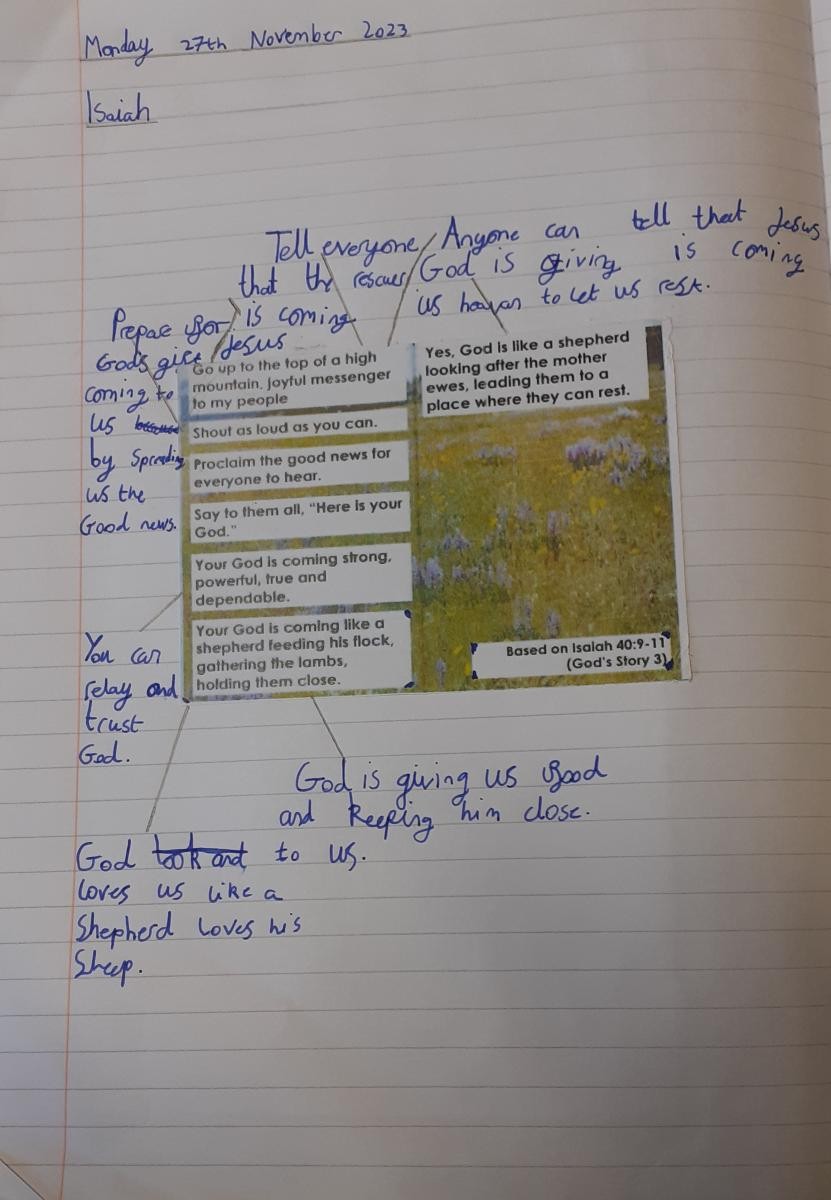 Monday 27th November 2023
Isaiah
Tell everyone
that the rescuer
is coming
Jesus
Anyone can tell that Jesus
is coming
God is giving
us heaven to let us rest.
Prepare for
God's gift
coming to
us
by Spreading
us the
Good news.
Go up to the top of a high
mountain, joyful messenger
to my people
Shout as loud as you can.
Proclaim the good news for
everyone to hear.
Say to them all, "Here is your
God."
Your God is coming strong,
powerful, true and
dependable.
Your God is coming like a
shepherd feeding his flock,
gathering the lambs,
holding them close.
Yes, God is like a shepherd
looking after the mother
ewes, leading them to a
place where they can rest.
Based on Isaiah 40:9-11
(God's Story 3)
You can
relay and
trust
God.
God is giving us good
and keeping him close.
to us.
God took and
loves us like a
Shepherd loves his
Sheep.